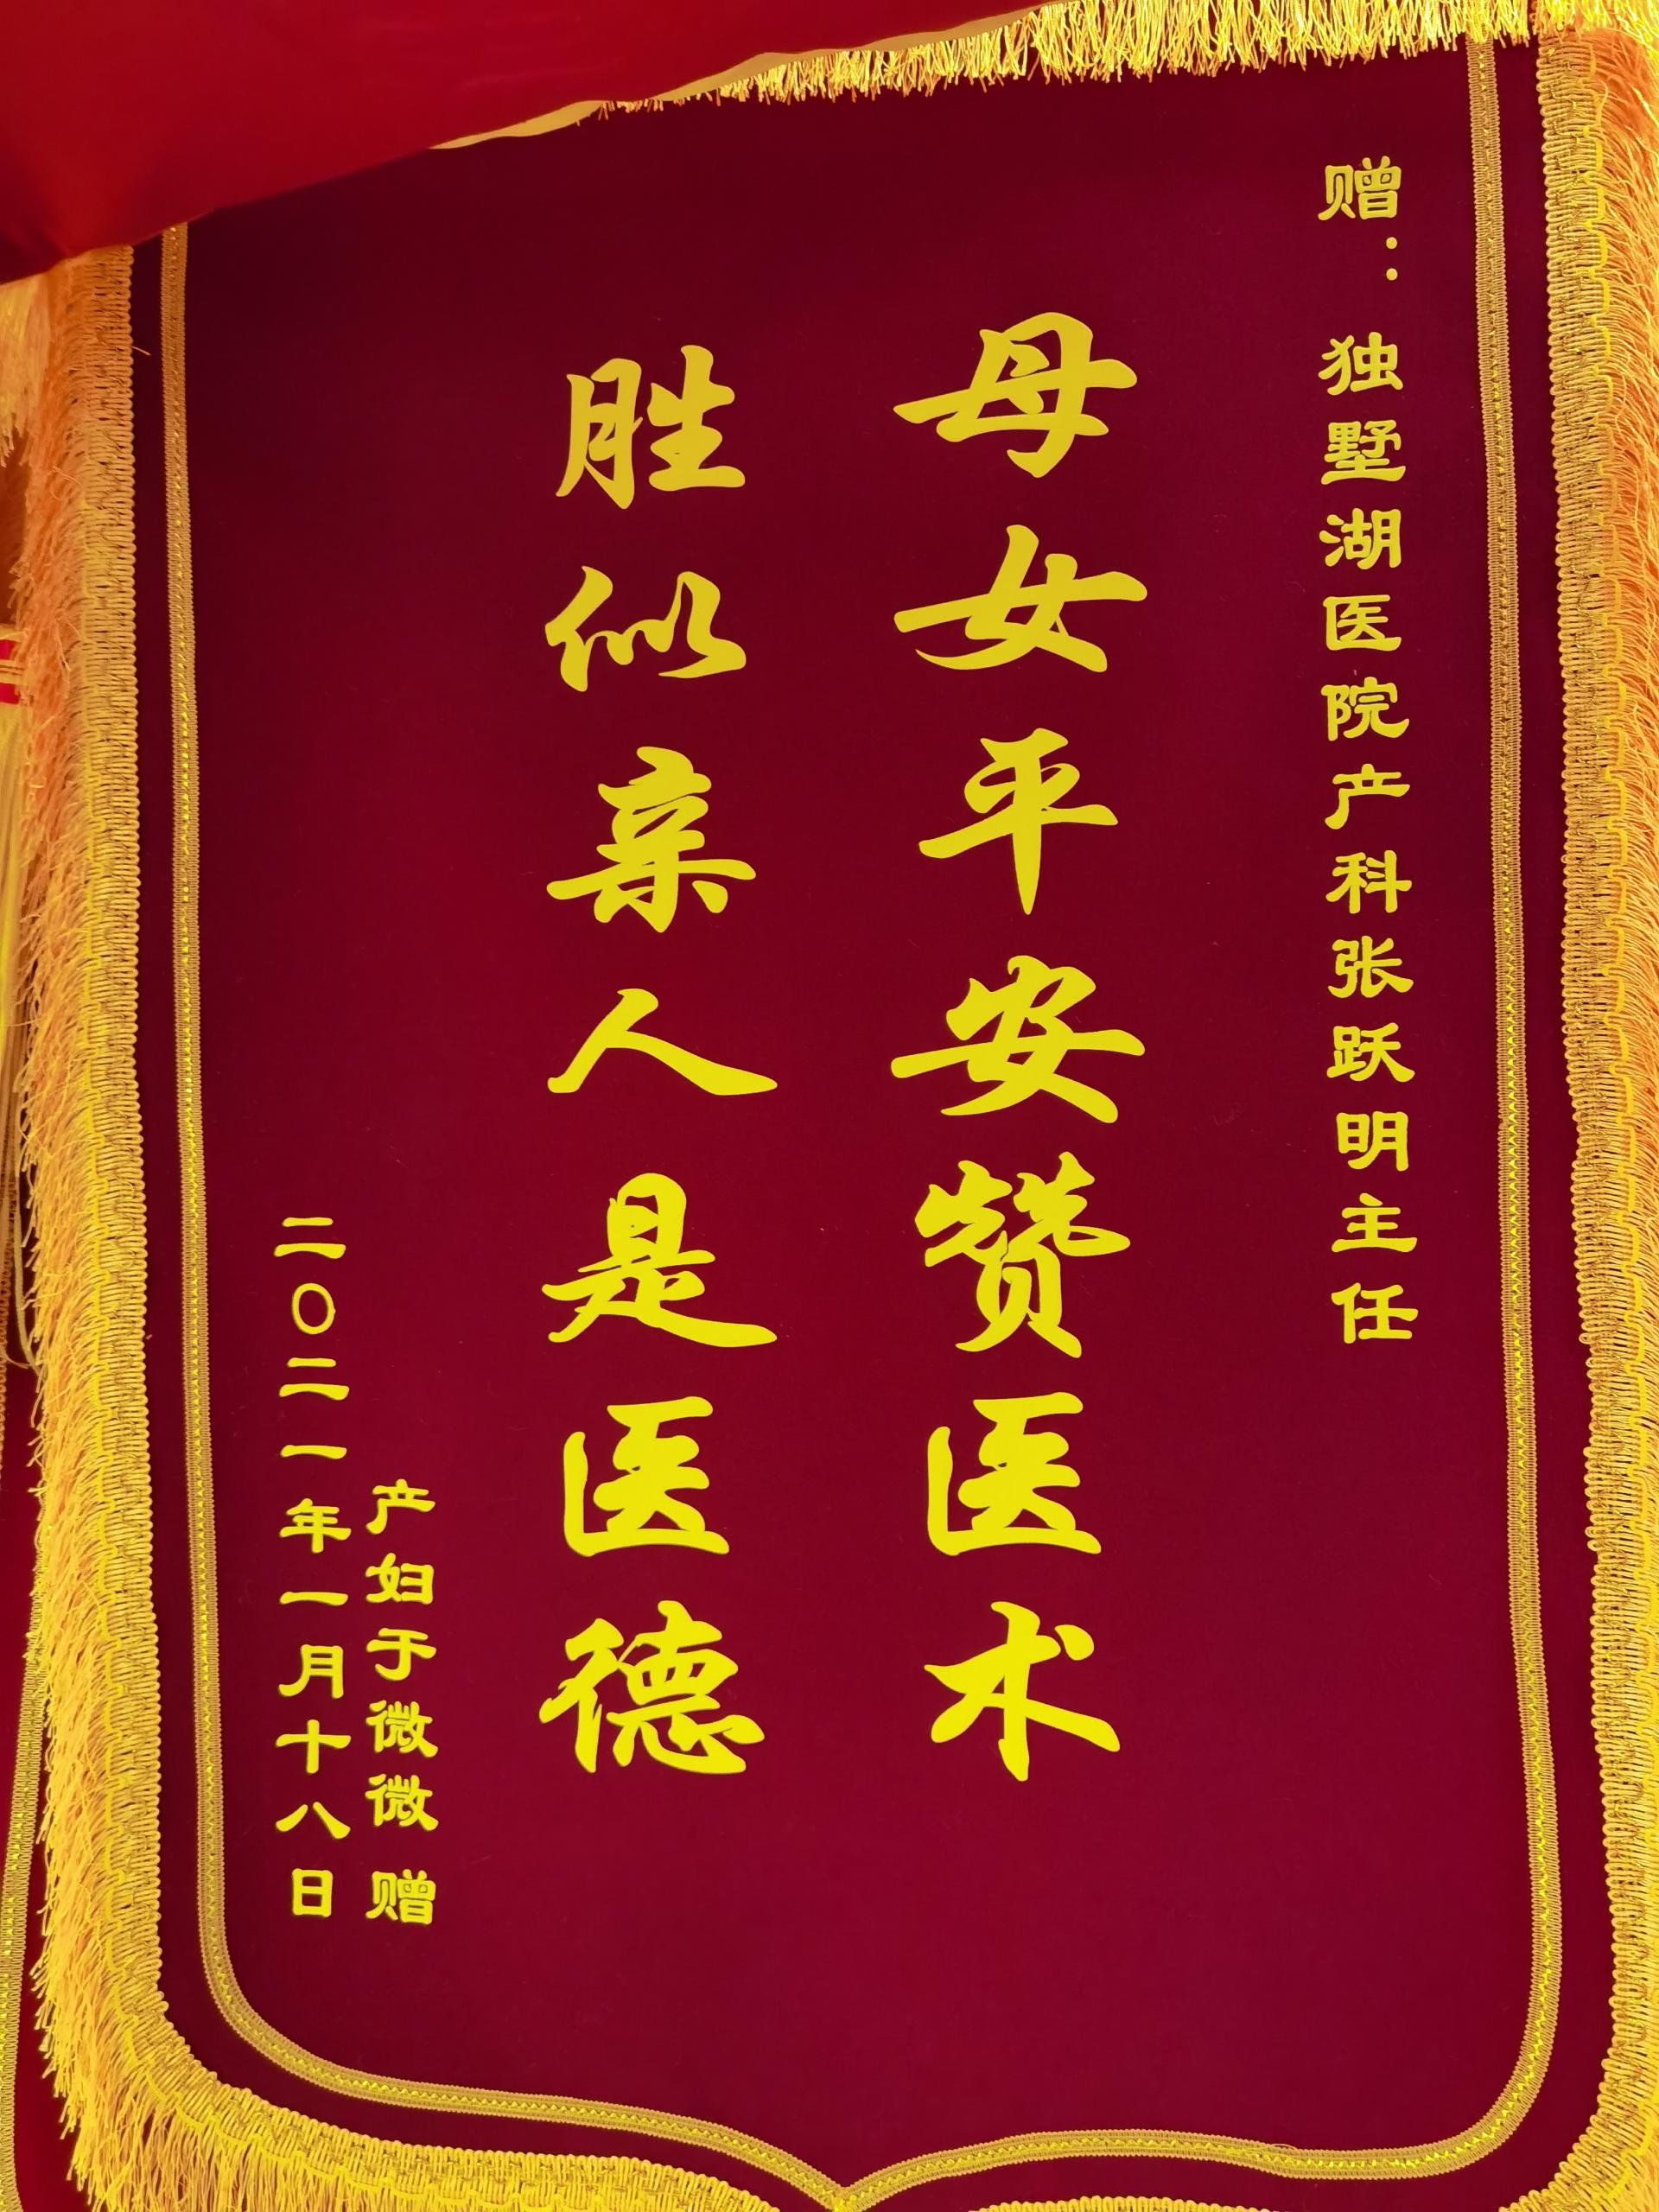 赠：独墅湖医院产科张跃明主任
母女平安赞医术
胜似亲人是医德
产妇于微微 赠
二〇二一年一月十八日